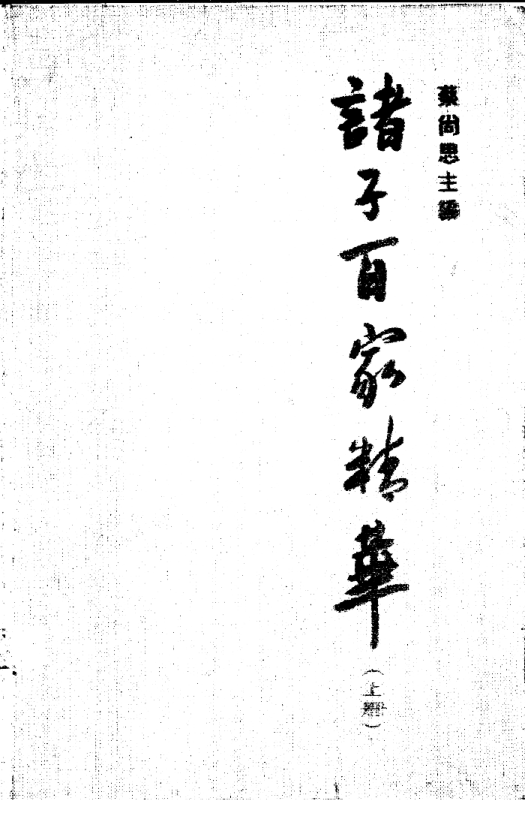 蔡尚思主編
諸子百家精華
（上冊）